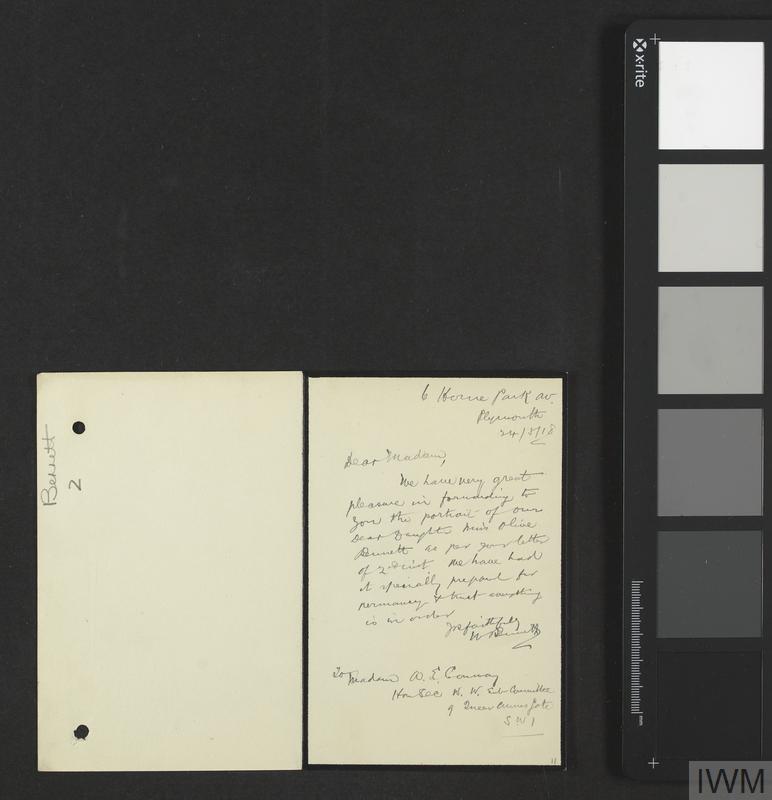 Bennett
2
6 Horne Park av.
Plymouth
24/8/18
Dear Madam,
We have very great
pleasure in forwarding to
you the portrait of our
Dear Daughter Miss Olive
Bennett as per your letter
of 2nd inst. We have had
it specially prepared for
permanency & trust everything
is in order
Yrs faithfully
W Bennett
To Madam A. E. Conway
Hon Sec W. W. Sub-Committee
9 Queen Annes Gate
S W 1
11
x-rite
mm
IWM